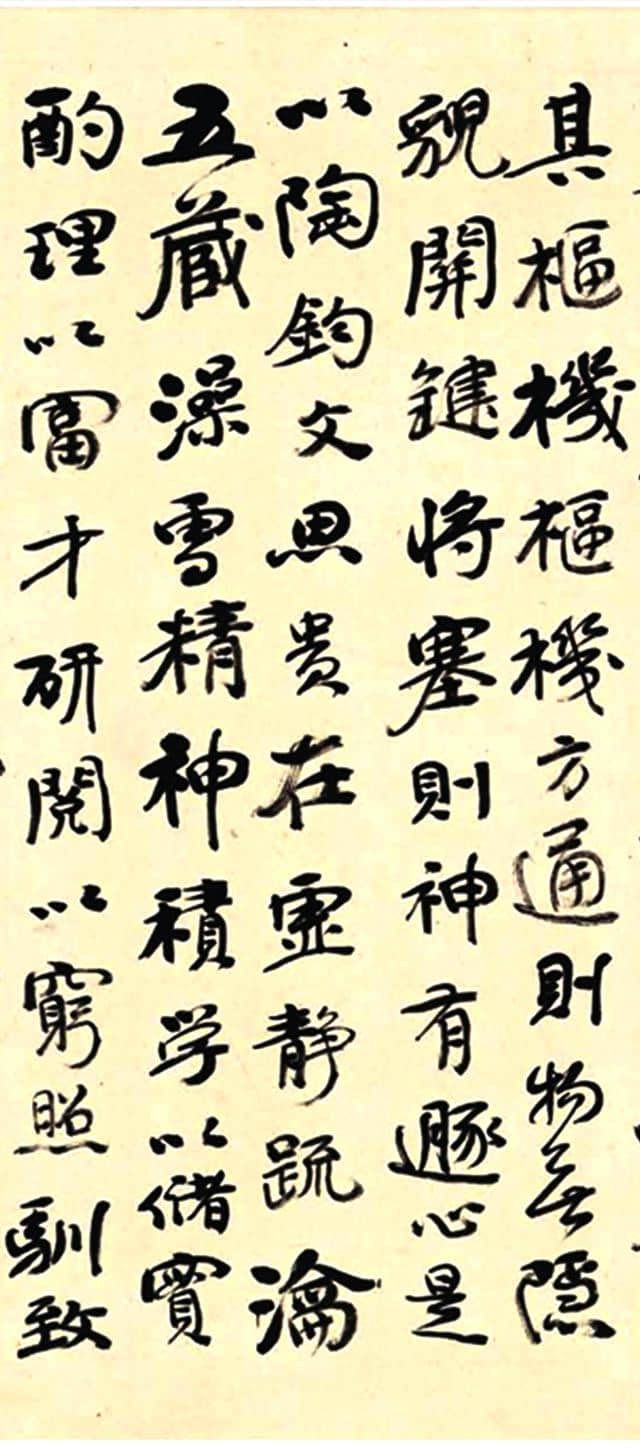 其樞機樞機方通則物無隱
貌關鍵將塞則神有遯心是
以陶鈞文思貴在虛静疏瀹
五藏澡雪精神積学以儲寶
酌理以富才研閱以窮照馴致